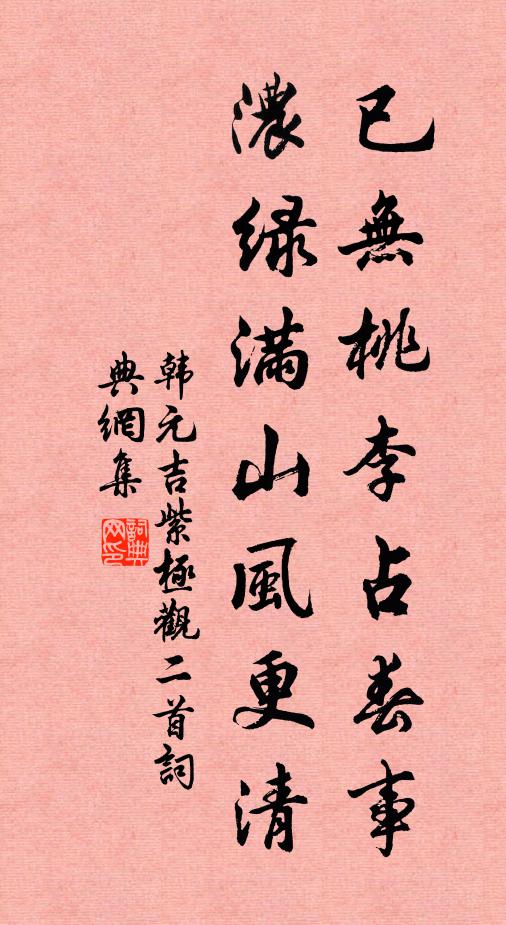 已無桃李占春事
濃绿滿山風更清
韩元吉紫極觀二首詞
典網集
詞典
网印